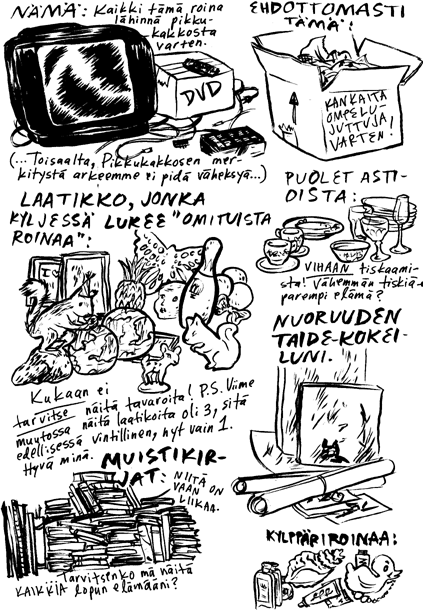 NÄMÄ: Kaikki tämä roina
lähinnä pikku-
kakkosta
varten.
DVD
(...Toisaalta, Pikkukakkosen mer-
kitystä arkeemme ei pidä väheksyä...)
EHDOTTOMASTI
TÄMÄ:
KANKAITA
OMPELU-
JUTTUJA
VARTEN!
LAATIKKO, JONKA
KYLJESSÄ LUKEE "OMITUISTA
ROINAA":
Kukaan ei
tarvitse näitä tavaroita! P.S. Viime
muutossa näitä laatikoita oli 3, sitä
edellisessä vintillinen, nyt vain 1.
Hyvä minä.
PUOLET ASTI-
OISTA:
VIHAAN tiskaami-
sta! Vähemmän tiskiä =
parempi elämä?
NUORUUDEN
TAIDE-KOKEI-
LUNI.
MUISTIKIR-
JAT: NIITÄ ON
VAAN
LIIKAA.
Tarvitsenko mä näitä
KAIKKIA lopun elämääni?
KYLPPÄRIROINAA: